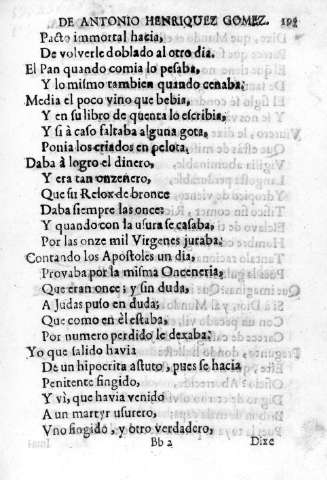 DE ANTONIO HENRIQUEZ GOMEZ.
Pacto immortal hacia,
De volverle doblado al otro dia.
El Pan quando comia lo pesaba,
Y lo mismo tambien quando cenaba;
Media el poco vino que bebia,
Y en su libro de quenta lo escribia;
Y si à caso faltaba alguna gota,
Ponia los criados en pelota,
Daba à logro el dinero,
Y era tan onzenero,
Que su Relox de bronce
Daba siempre las once:
Y quando con la usura se casaba,
Por las onze mil Virgenes juraba;
Contando los Apostoles un dia,
Provaba por la misma Onceneria,
Que eran once; y sin duda,
A Judas puso en duda;
Que como en èl estaba,
Por numero perdido le dexaba:
Yo que salido havia
De un hipocrita astuto, pues se hacia
Penitente fingido,
Y vì, que havia venido
A un martyr usurero,
Vno fingido, y otro verdadero,
Bb 2 Dixe